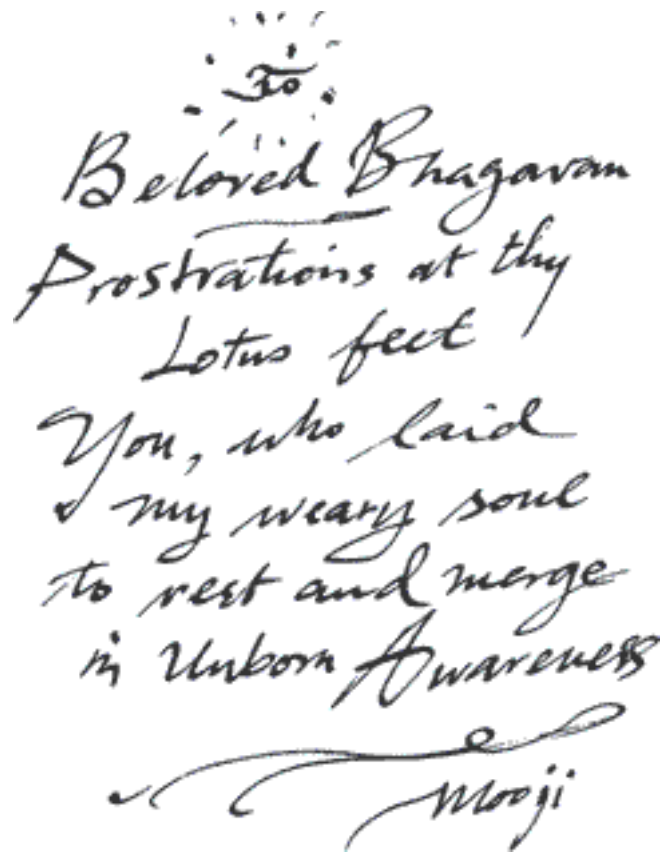 To
Beloved Bhagavan
Prostrations at thy
Lotus feet
You, who laid
my weary soul
to rest and merge
in Unborn Awareness
Mooji